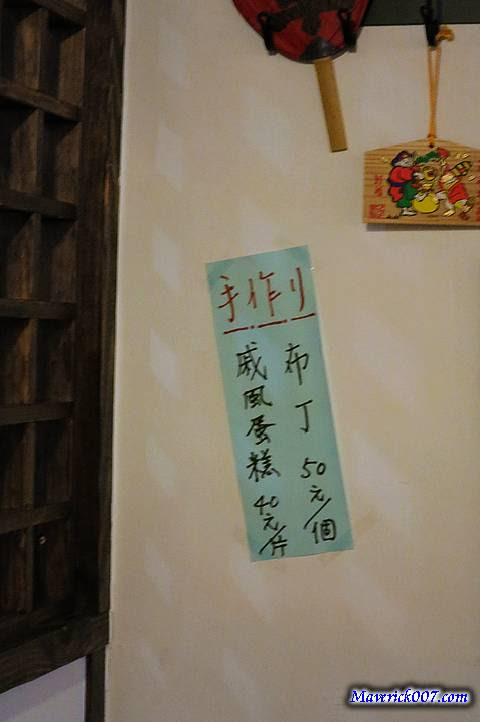 手作り
布丁 50元/個
戚風蛋糕 40元/片
Maverick007.com